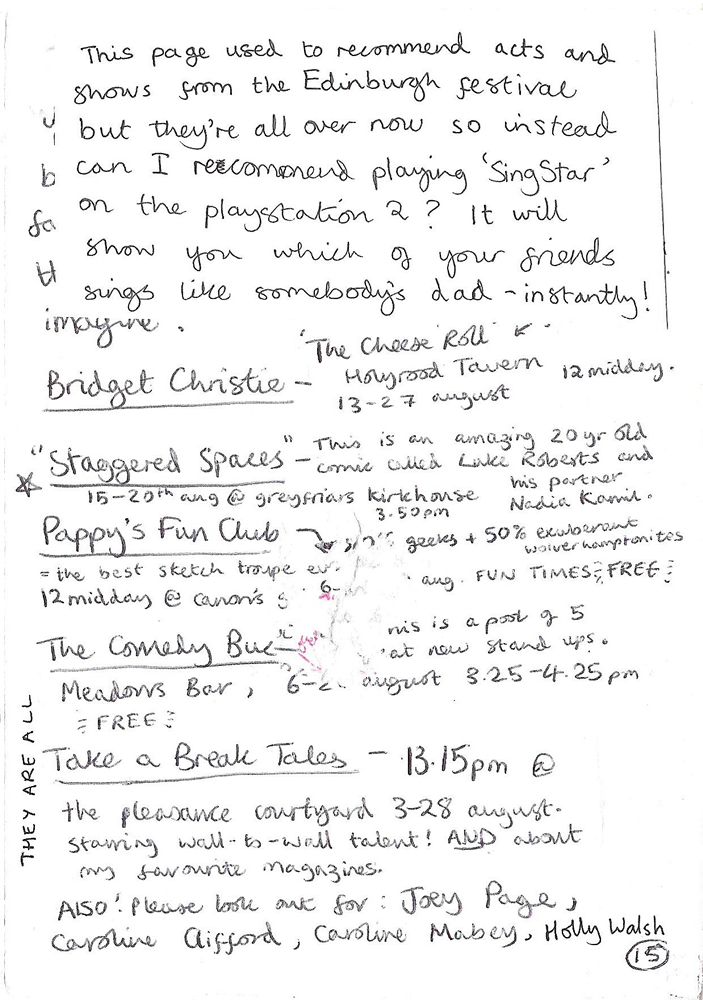 This page used to recommend acts and
shows from the Edinburgh festival
but they're all over now so instead
can I reccomonend playing 'SingStar'
on the playstation 2? It will
show you which of your friends
sings like somebody's dad - instantly!
imagine.
'The Cheese Roll'
Bridget Christie - Holyrood Tavern 12 midday.
13-27 august
"Staggered Spaces" - This is an amazing 20 yr old
comic called Luke Roberts and
his partner
15-20th aug @ greyfriars kirkhouse Nadia Kamil.
3.50pm
Pappy's Fun Club geeks + 50% exuberant
wolverhamptonites
= the best sketch troupe aug. FUN TIMES FREE
12 midday @ canon's 6-
The Comedy is a pool of 5
new stand ups.
Meadows Bar, 6-2 august 3.25-4.25pm
FREE
Take a Break Tales - 13.15pm @
the pleasance courtyard 3-28 august.
starring wall-to-wall talent! AND about
my favourite magazines.
ALSO! Please look out for: Joey Page,
Caroline Clifford, Caroline Mabey, Holly Walsh
15
THEY ARE ALL